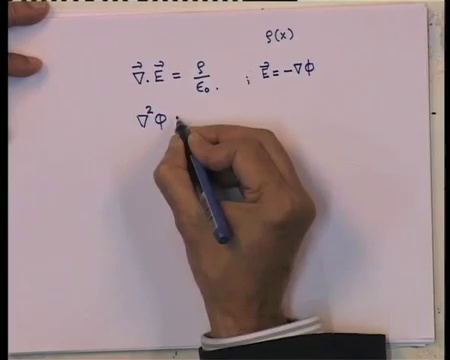 ρ(x)
∇⃗.E⃗ = ρ/ε₀. ; E⃗ = -∇φ
∇²φ